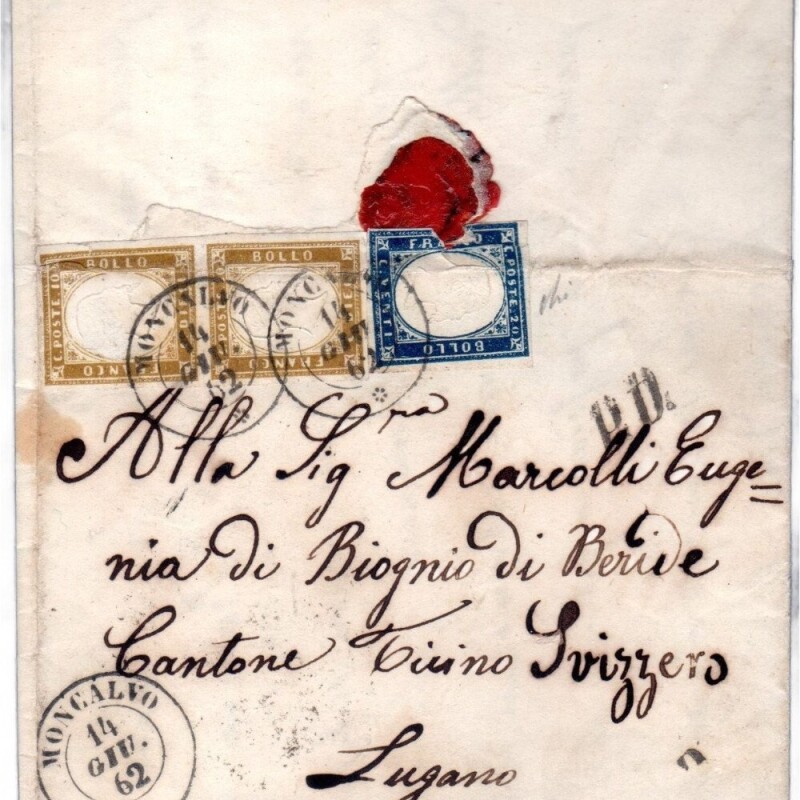 BOLLO
C. POSTE 10
FRANCO
BOLLO
FRANCO
FRANCO
C. POSTE 20
C. VENTI
BOLLO
MONCALVO
14
GIU.
62
MONCALVO
14
GIU.
62
P.D.
Alla Sig.ra Marcolli Euge=
nia di Biognio di Beride
Cantone Ticino Svizzero
Lugano
MONCALVO
14
GIU.
62